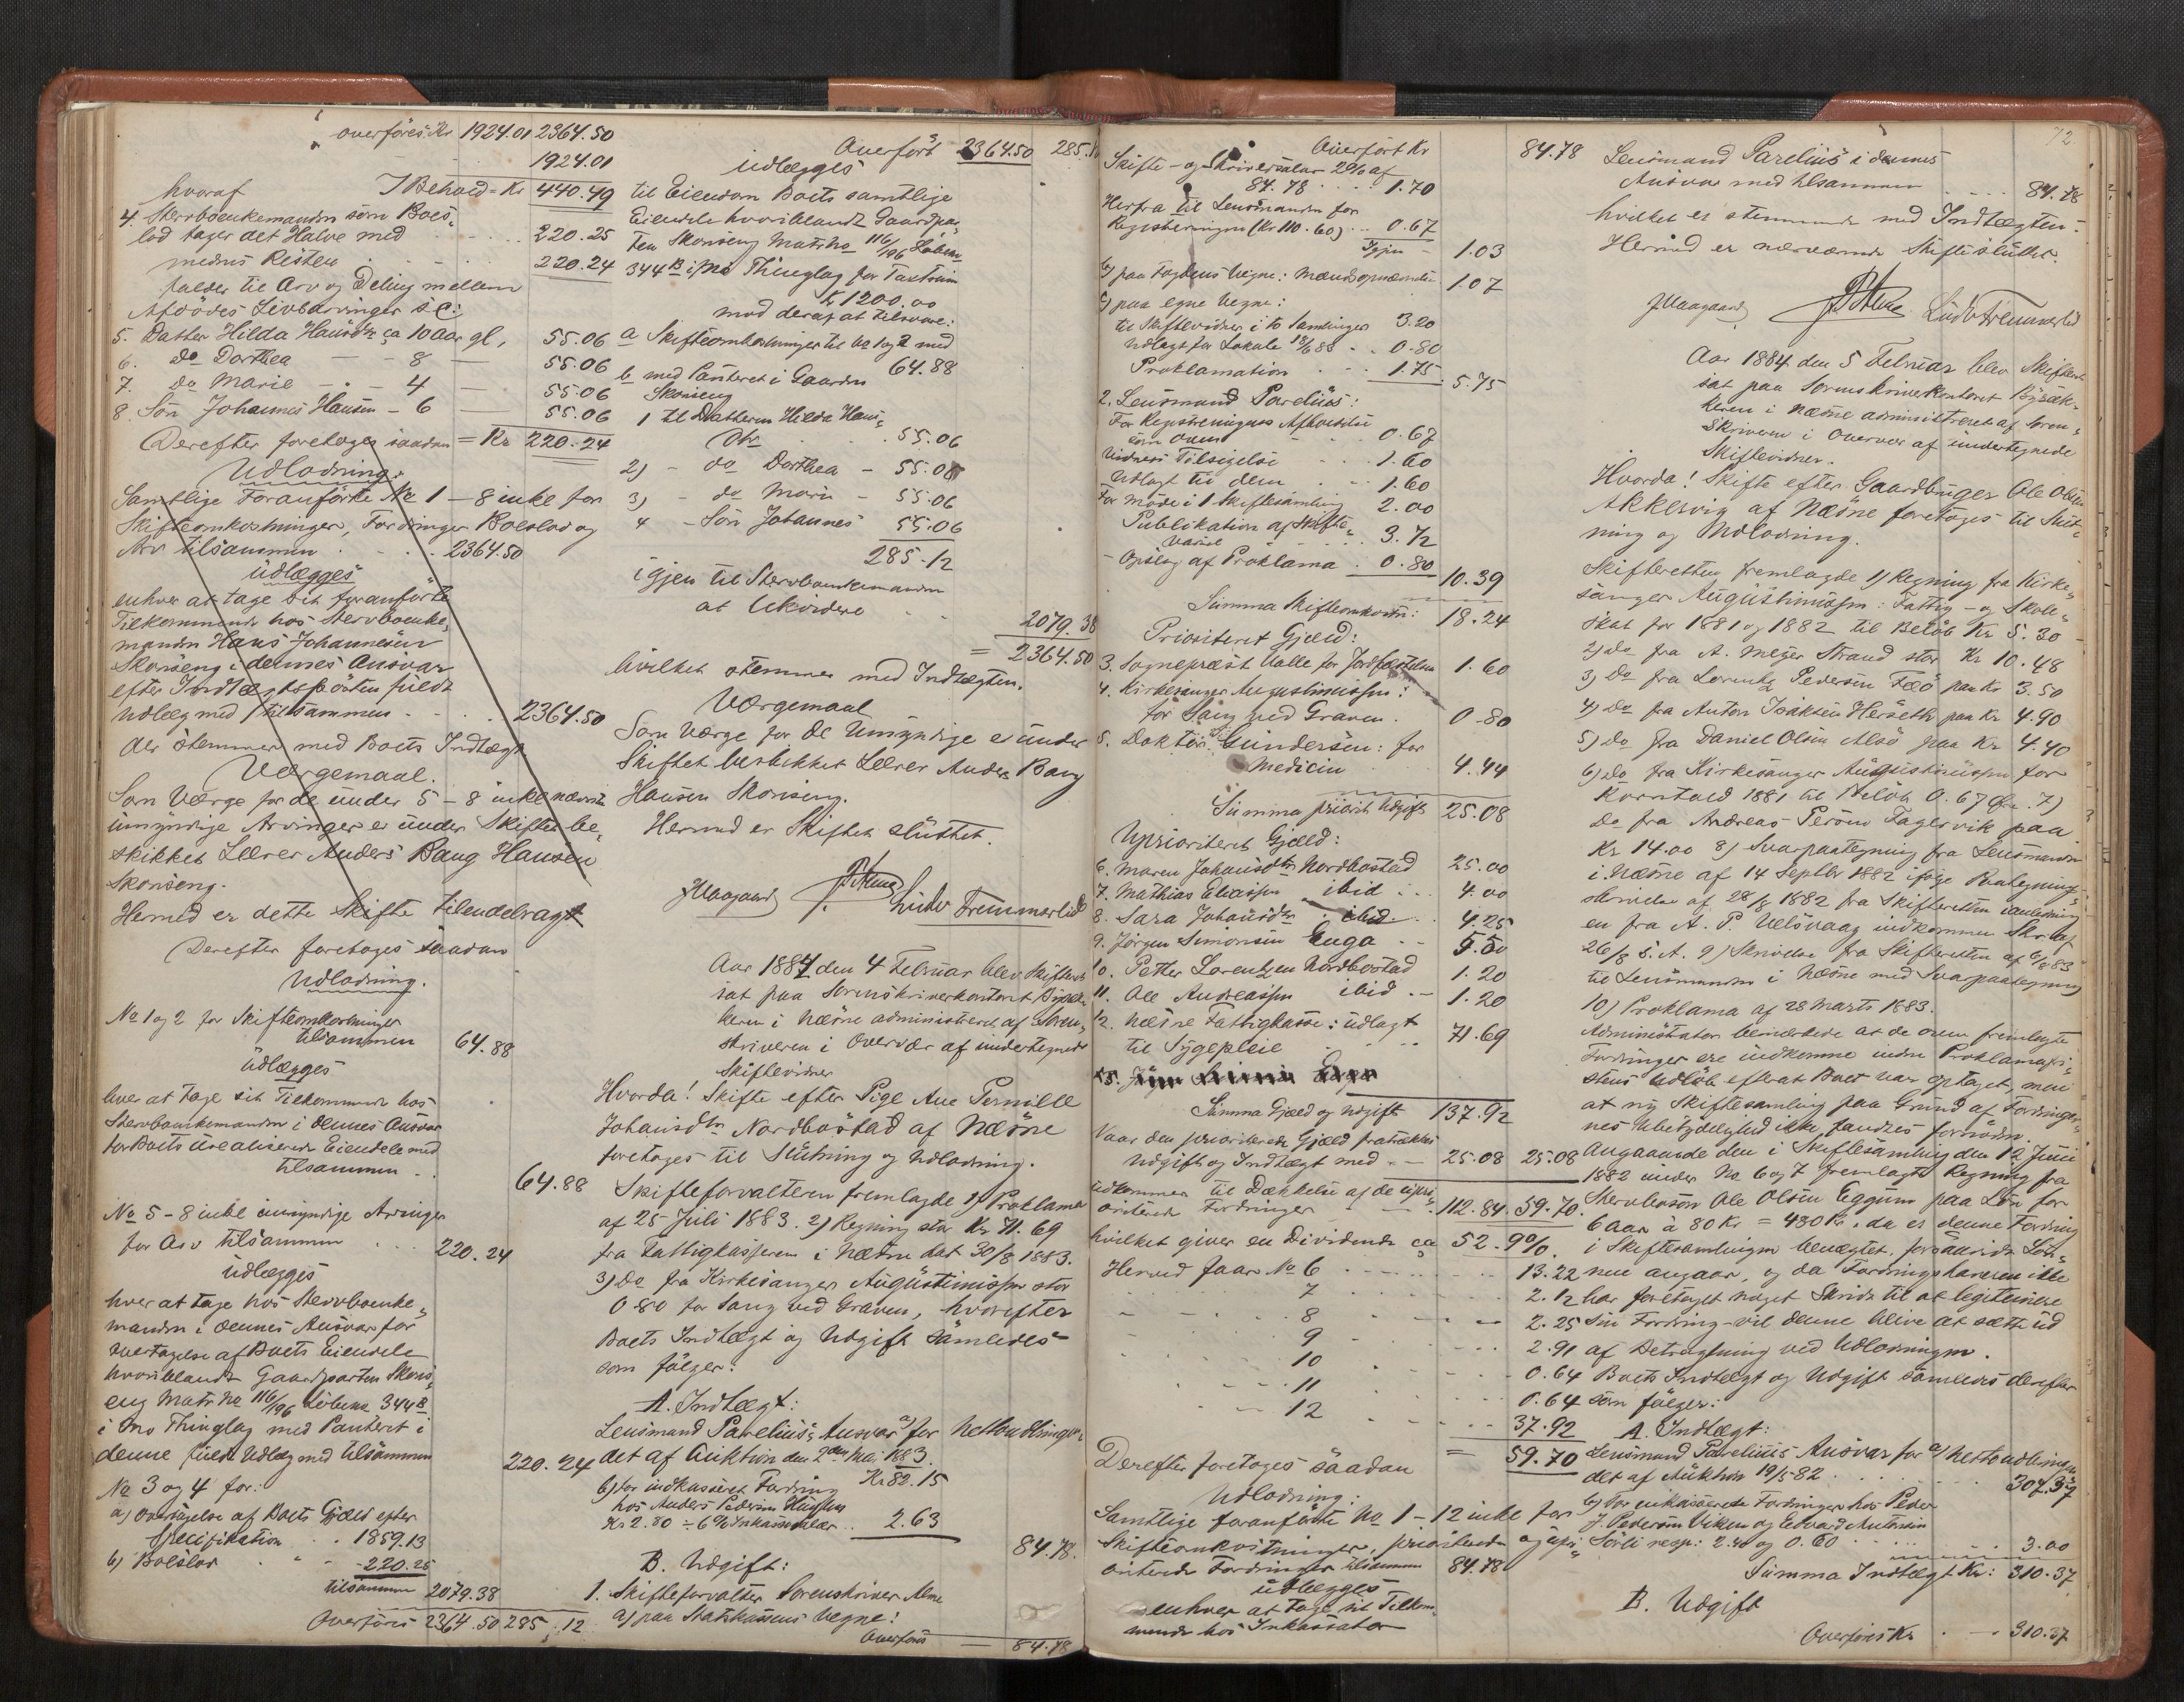 overføres Kr 1924.01 2364.50
1924.01
hvoraf I Behold = Kr 440.49
4. Stervboenkemanden som Boes-
lod tager det Halve med 220.25
medens Resten 220.24
falder til Arv og Deling mellem
Afdødes Livsarvinger s: C:
5. Datter Hilda Hansdtr ca 10 Aar gl, 55.06
6. do Dorthea — 8 — 55.06
7. do Marie — 4 — 55.06
8. Søn Johannes Hansen — 6 — 55.06
Derefter foretoges saadan = Kr 220.24
Udlodning:
Samtlige Foranførte No 1 – 8 inkl for
Skifteomkostninger, Fordringer Boeslod og
Arv tilsammen 2364.50
udlægges
enhver at tage sit foranførte
Tilkommende hos Stervboenke-
manden Hans Johannesen
Skonseng i dennes Ansvar
efter Indtægtsposten fuldt
Udlæg med tilsammen 2364.50
der stemmer med Boets Indtægt
Værgemaal.
Som Værge for de under 5 – 8 inkl nævnte
umyndige Arvinger er under Skiftet be-
skikket Lærer Anders Bang Hansen
Skonseng.
Hermed er dette Skifte tilendebragt
Derefter foretoges saadan
Udlodning.
No 1 og 2 for Skifteomkostninger
tilsammen 64.88
udlægges
hver at tage sit Tilkommende hos
Stervboenkemanden i dennes Ansvar
for Boets urealiserede Eiendele med
tilsammen 64.88
No 5 – 8 inkl umyndige Arvinger
for Arv tilsammen 220.24
udlægges
hver at tage hos Stervboenke-
manden i dennes Ansvar for
overtagelse af Boets Eiendele
hvoriblandt Gaardparten Skons-
eng Matr No 116/196 Løbeno 344 B
i Mo Thinglag med Panteret i
denne fuldt Udlæg med tilsammen 220.24
No 3 og 4 for:
a) overtagelse af Boets Gjæld efter
Specifikation 1859.13
b) Boeslod 220.25
tilsammen 2079.38
Overføres 2364.50 285.12
Overført 2364.50 285.12
udlægges
til Eiendom Boets samtlige
Eiendele hvoriblandt Gaardpar-
ten Skonseng Matr No 116/196 Løbeno
344 B i Mo Thinglag for Taxtsum
Kr 1200.00
mod deraf at tilsvare:
a Skifteomkostninger til No 1 og 2 med
64.88
b med Panteret i Gaarden
Skonseng
1 til Datteren Hilda Hans-
dtr 55.06
2) – do Dorthea – 55.06
3) – do Marie – 55.06
4 – Søn Johannes 55.06
285.12
igjen til Stervboenkemanden
at likvidere 2079.38
= 2364.50
hvilket stemmer med Indtægten.
Værgemaal
Som Værge for de Umyndige er under
Skiftet beskikket Lærer Anders Bang
Hansen Skonseng.
Hermed er Skiftet sluttet.
J. Waagaard Ludv Fremmerlid
Aar 1884 den 4 Februar blev Skifteret
sat paa Sorenskriverkontoret Bysæk-
keren i Næsne administreret af Soren-
skriveren i Overvær af undertegnede
Skiftevidner
Hvorda! Skifte efter Pige Ane Pernille
Johansdtr Nordbostad af Næsne
foretoges til Slutning og Udlodning.
Skifteforvalteren fremlagde 1) Proklama
af 25 Juli 1883. 2) Regning stor Kr 71.69
fra Fattigkassereren i Næsne dat 30/8 1883.
3) Do fra Kirkesanger Augustinussen stor
0.80 for Sang ved Graven, hvorefter
Boets Indtægt og Udgift samledes
som følger:
A. Indtægt:
Lensmand Parelius's Ansvar a) for Nettoudbringen-
det af Auktion den 2den Mai 1883.
Kr 82.15
b) for indkasseret Fordring
hos Anders Pedersen
Kr 2.80 ÷ 6% Inkassosalær 2.63
84.78.
B. Udgift:
1. Skifteforvalter Sorenskriver
a) paa Statskassens Vegne:
Overføres — 84.78
72
Overført Kr 84.78
Skifte- og Skriversalær 2% af
84.78 1.70
Herfra til Lensmanden for
Registreringen (Kr 110.60) 0.67
Igjen – 1.03
b) paa Fogdens Vegne: Mændsopnævnelse 1.07
c) paa egne Vegne:
til Skiftevidner i to Samlinger 3.20
Udlagt for Lokale 0.80
Proklamation 1.75
5.75
2. Lensmand Parelius:
For Registreringens Afholdelse
som oven 0.67
Vidners Tilsigelse 1.60
Udlagt til dem 1.60
For Møde i 1 Skiftesamling 2.00
Publikation af Skifte-
varsel 3.72
– Opslag af Proklama 0.80
10.39
Summa Skifteomkostn: 18.24
Prioriteret Gjæld:
3. Sogneprest Valle for Jordfæstelsen 1.60
4. Kirkesanger Augustinussen:
for Sang ved Graven. 0.80
5. Doktor Gundersen: for
Medicin 4.44
Summa priorit Udgift 25.08
Uprioriteret Gjæld:
6. Maren Johansdtr Nordbostad 25.00
7. Mathias Eliassen ibid 4.00
8. Sara Johansdtr ibid 4.25
9. Jørgen Simonsen Enga 5.50
10. Petter Lorentzen Nordbostad 1.20
11. Ole Andreassen ibid — 1.20
12. Næsne Fattigkasse: udlagt
til Sygepleie 71.69
Summa Gjæld og Udgift 137.92
Naar den prioriterede Gjæld fratrækkes
Udgift og Indtægt med — 25.08 25.08
udkommer til Dækkelse af de upri-
oriterede Fordringer 112.84. 59.70.
hvilket giver en Dividende ca 52.9%.
Herved faar No 6 13.22
7 2.12
8 2.25
9 2.91
10 0.64
11 0.64
12 37.92
= 59.70
Derefter foretoges saadan
Udlodning:
Samtlige foranførte No 1 – 12 inkl for
Skifteomkostninger, prioriterede og upri-
oriterede Fordringer tilsammen 84.78
udlægges
enhver at tage sit Tilkom-
mende hos Inkassator
Lensmand Parelius i dennes
Ansvar med tilsammen 84.78
hvilket er stemmende med Indtægten.
Hermed er nærværende Skifte sluttet.
J. Waagaard Ludv Fremmerlid
Aar 1884 den 5 Februar blev Skifteret
sat paa Sorenskriverkontoret Bysæk-
keren i Næsne administreret af Soren-
skriveren i Overvær af undertegnede
Skiftevidner.
Hvorda! Skifte efter Gaardbruger Ole Olsen
Akkersvig af Næsne foretoges til Slut-
ning og Udlodning.
Skifteretten fremlagde 1) Regning fra Kirke-
sanger Augustinussen: Fattig- og Skole-
skat for 1881 og 1882 til Beløb Kr 5.30
2) Do fra A. Meyer Strand stor Kr 10.48
3) Do fra Lorentz Pedersen paa Kr 3.50
4) Do fra Anton Isaksen Herseth paa Kr 4.90
5) Do fra Daniel Olsen Alsø paa Kr 4.40
6) Do fra Kirkesanger Augustinussen for
Korntold 1881 til Beløb 0.67 Øre. 7)
Do fra Andreas Persen Fagervik paa
Kr 14.00 8) Svarpaategning fra Lensmanden
i Næsne af 14 Septbr 1882 ifølge Paategnings-
skrivelse af 28/8 1882 fra Skifteretten i anledning
en fra A. P. Ulsvaag indkommen Skr: af
26/8 s. A. 9) Skrivelse fra Skifteretten af 6/8 83
til Lensmanden i Næsne med Svarpaategning
10) Proklama af 28 Marts 1883.
Administrator bemærkede at de oven fremlagte
Fordringer ere indkomne inden Proklamafri-
stens Udløb efterat Boet var optaget, men
at ny Skiftesamling paa Grund af Fordringer-
nes Ubetydelighed ikke fandtes fornøden.
Angaaende den i Skiftesamling den 12 Juni
1882 under No 6 og 7 fremlagte Regning fra
Stervbosøn Ole Olsen Eggum paa Løn for
6 Aar à 80 Kr = 480 Kr, da er denne Fordring
i Skiftesamlingen benægtet, forsaavidt Løn-
nen angaar, og da Fordringshaveren ikke
har foretaget noget Skridt til at legitimere
sin Fordring – vil denne blive at sætte ud
af Betragtning ved Udlodningen.
Boets Indtægt og Udgift samledes derefter
som følger:
A. Indtægt:
Lensmand Parelius's Ansvar for a) Nettoudbringen-
det af Auktion 19/5-82 307.37
b) For inkasserede Fordringer hos Peder
J. Pedersen Viken og Edvard Antonsen
Sørli resp: 2.40 og 0.60 3.00
Summa Indtægt Kr: 310.37
B. Udgift
Overføres Kr 310.37